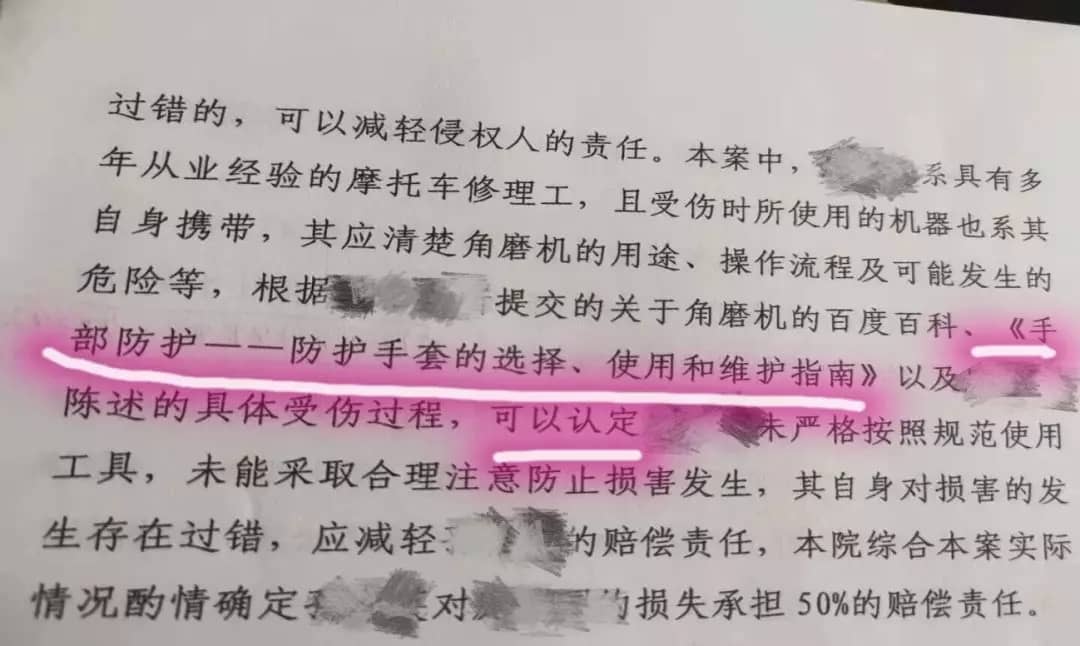 过错的，可以减轻侵权人的责任。本案中，系具有多
年从业经验的摩托车修理工，且受伤时所使用的机器也系其
自身携带，其应清楚角磨机的用途、操作流程及可能发生的
危险等，根据提交的关于角磨机的百度百科、《手
部防护——防护手套的选择、使用和维护指南》以及
陈述的具体受伤过程，可以认定未严格按照规范使用
工具，未能采取合理注意防止损害发生，其自身对损害的发
生存在过错，应减轻的赔偿责任，本院综合本案实际
情况酌情确定对的损失承担50%的赔偿责任。